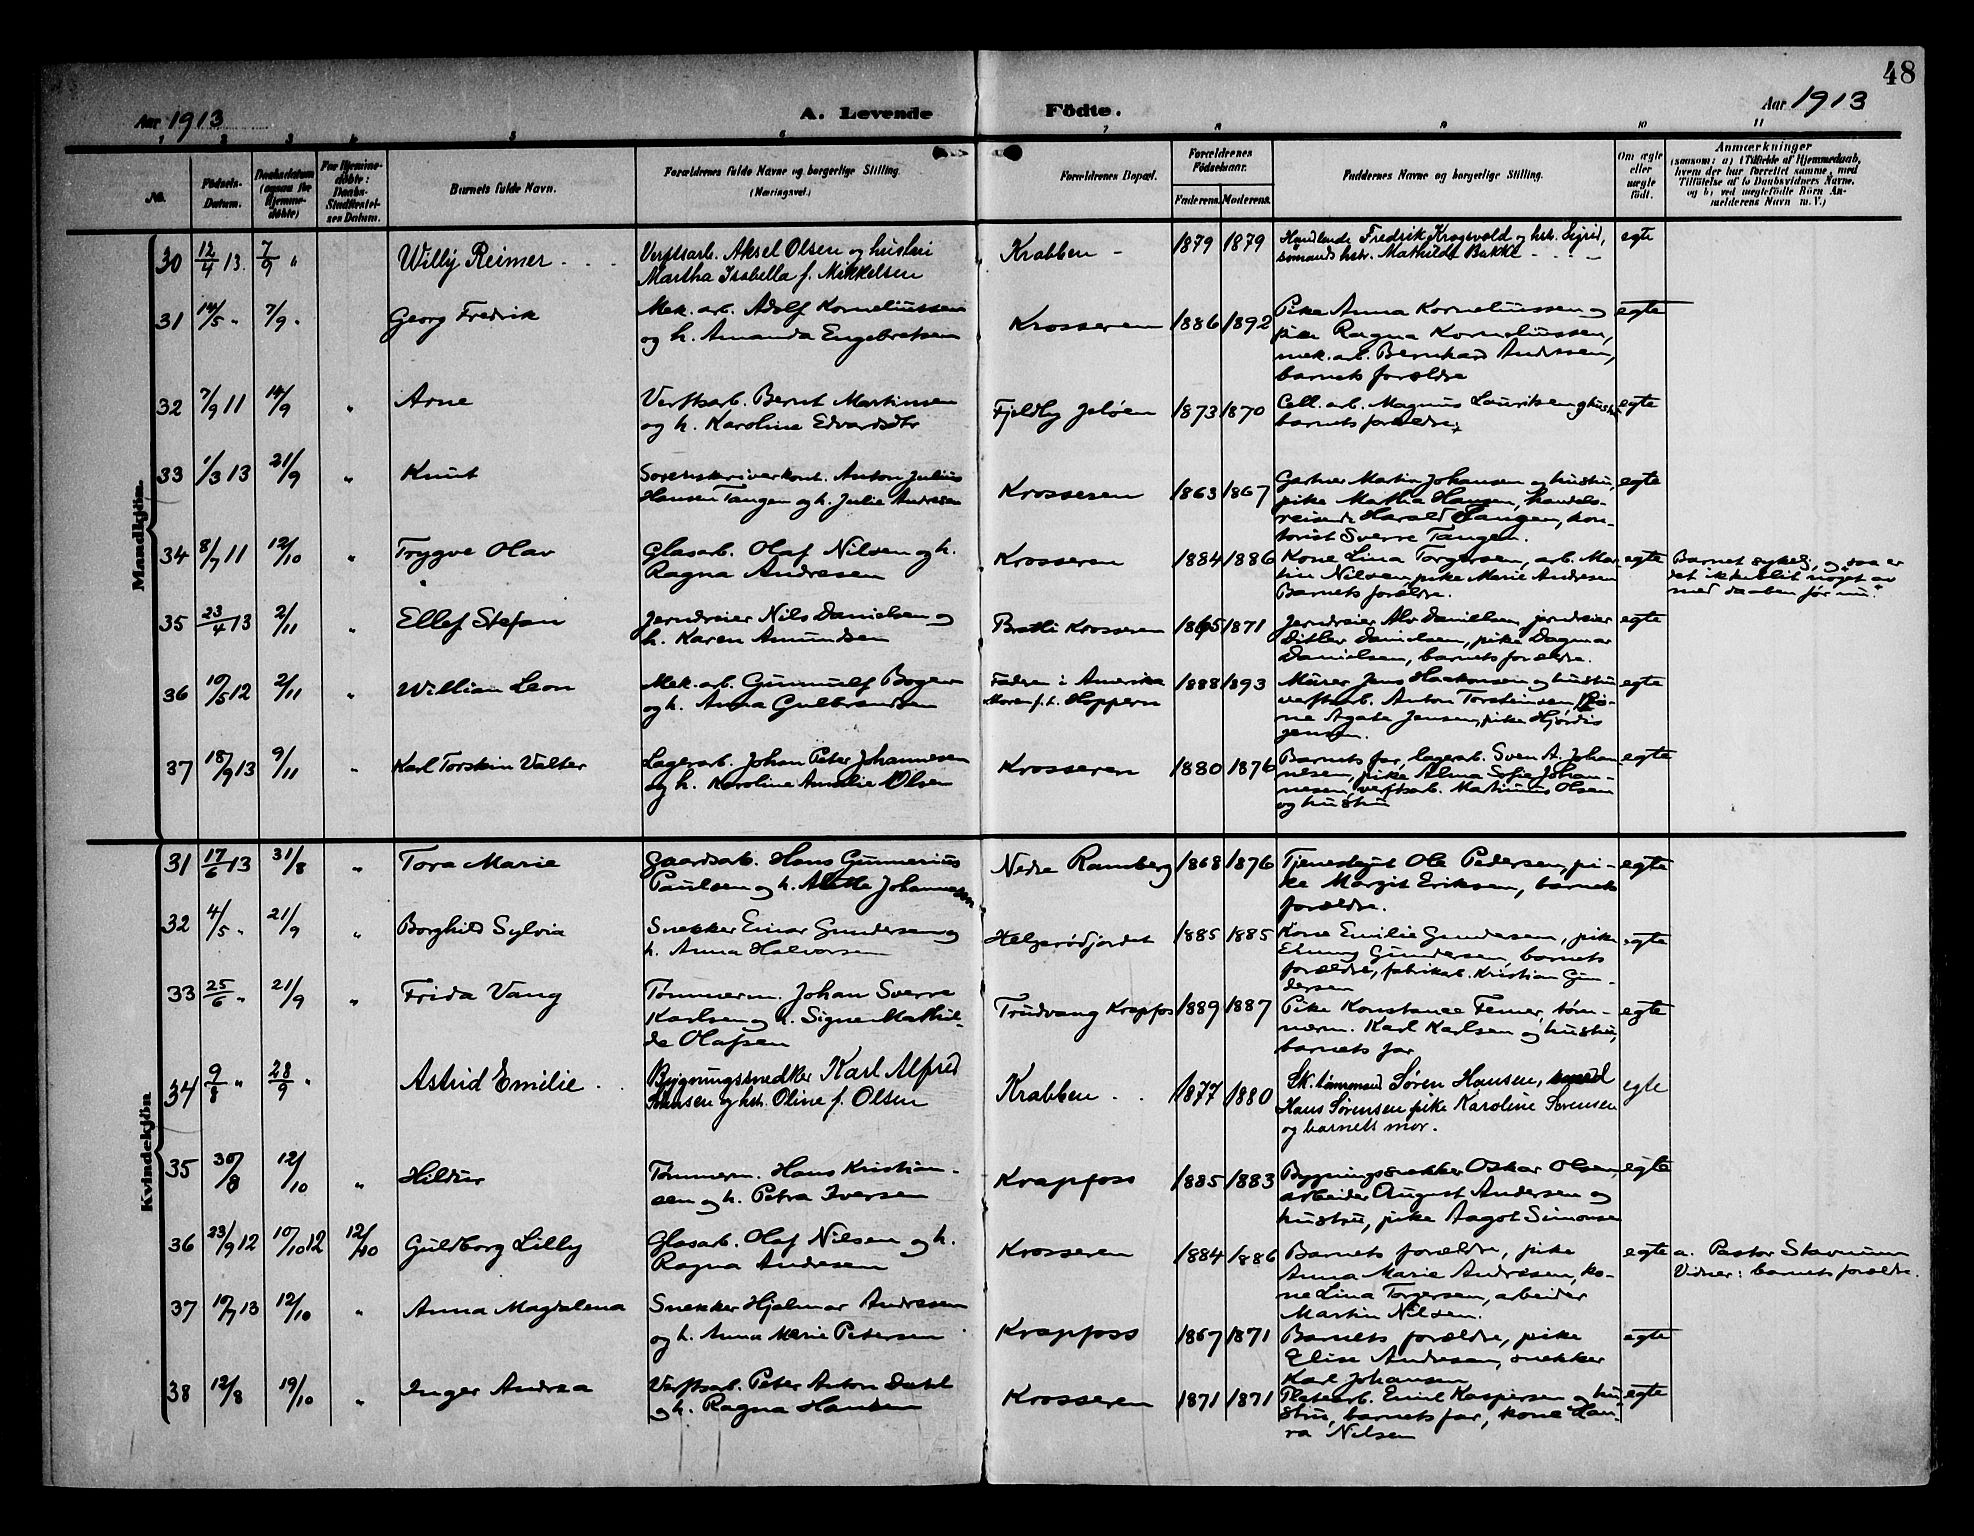 48
Aar 1913
A. Levende Födte.
Aar 1913
1 2 3 4 5 6 7 8 9 10 11
No.
Födsels-
Datum.
Daabsdatum
(ogsaa for
Hjemme-
döbte)
For Hjemme-
döbte:
Daabs-
Stadfæstel-
sens Datum.
Barnets fulde Navn.
Forældrenes fulde Navne og borgerlige Stilling
(Næringsvei.)
Forældrenes Bopæl.
Forældrenes
Födselsaar.
Faderens. Moderens.
Faddernes Navne og borgerlige Stilling.
Om ægte
eller
uægte
født.
Anmærkninger
(saasom: a) i Tilfælde af Hjemmedaab,
hvem der har forrettet samme, med
Tilføielse af to Daabsvidners Navne,
og b) ved uægtefødte Börn An-
melderens Navn m. V.)
Mandkjön.
30 12/4 13. 7/9 " Willy Reimer Verftsarb. Aksel Olsen og hustru
Martha Isabella f. Mikkelsen
Krabben - 1879 1879 Handlende Fredrik Kragsvold og hst. Sigrid,
sømands hst. Mathilde Bakke egte
31 14/5 " 7/9 " Georg Fredrik Mek. arb. Adolf Korneliussen
og h. Amanda Engebretsen
Krosseren 1886 1892 Pike Anna Korneliussen og
pike Ragna Korneliussen,
mek. arb. Bernhard Andresen,
barnets forældre egte
32 7/9 11 14/9 " Arne Verftsarb. Bernt Martinsen
og h. Karoline Edvardsdtr
Fjeldby Jeløen 1873 1870 Cell. arb. Magnus Lauritsen og hustru
barnets forældre. egte
33 1/3 13 21/9 " Knut Sorenskriverkont. Anton Julius
Hansen Tangen og h. Julie Andresen
Krosseren 1863 1867 Gartner Martin Johansen og hustru,
pike Martha Hansen, handels-
reisende Harald Tangen, kon-
torist Sverre Tangen. egte
34 8/7 11 12/10 " Trygve Olav Glasarb. Olaf Nilsen og h.
Ragna Andresen
Krosseren 1884 1886 Kone Lina Torgersen, arb. Mar-
tin Nilsen, pike Marie Andresen
Barnets forældre. egte
Barnet sykelig, og "saa er
det ikke blit noget av
med daaben før nu."
35 23/4 13 2/11 " Ellef Stefan Jerndreier Nils Danielsen og
h. Karen Amundsen
Bratli Krosseren 1865 1871 Jerndreier Alv Danielsen, jerndreier
Ditlev Danielsen, pike Dagmar
Danielsen, barnets forældre. egte
36 10/5 12 2/11 " William Leon Mek. arb. Gunnulf Bogen
og h. Anna Gulbrandsen
Faderen i Amerika
Moren f. t. Hoppern
1888 1893 Murer Jens Haakonsen og hustru
verftsarb. Anton Torsteinsen,
Agate Jensen, pike Hjørdis
Jensen. egte
37 18/9 13 9/11 " Karl Torstein Valter Lagerarb. Johan Peter Johannesen
og h. Karoline Amalie Olsen
Krosseren 1880 1876 Barnets far, lagerarb. Sven A. Johan-
nesen, pike Alma Sofie Johan-
nesen, verftsarb. Martinius Olsen
og hustru egte
Kvindekjön
31 17/6 13 31/8 " Tora Marie Gaardsarb. Hans Gunnerius
Paulsen og h. Alette Johannesen
Nedre Ramberg 1868 1876 Tjenestegut Ole Pedersen, pi-
ke Margit Eriksen, barnets
forældre. egte
32 4/5 " 21/9 " Borghild Sylvia Snekker Einar Gundersen og
h. Anna Halvorsen
Helgerødjordet 1885 1885 Kone Emilie Gundersen, pike
Elnny Gundersen, barnets
forældre, fabrikarb. Kristian Gun-
dersen egte
33 25/6 " 21/9 " Frida Vang Tømmerm. Johan Sverre
Karlsen og h. Signe Mathil-
de Olafsen
Trudvang Krapfos 1889 1887 Pike Konstance Femer, tøm-
merm. Karl Karlsen og hustru,
barnets far egte
34 9/8 " 28/9 " Astrid Emilie Bygningssnedker Karl Alfred
Johansen og hst. Oline f. Olsen
Krabben 1877 1880 Sk. tømmermd Søren Hansen,
Hans Sørensen pike Karoline Sørensen
og barnets mor. egte
35 30/8 12/10 " Hildur Tømmerm. Hans Kristian-
sen og h. Petra Iversen
Krapfoss 1885 1883 Bygningssnekker Oskar Olsen,
arbeider August Andersen og
hustru, pike Aagot Simonsen egte
36 23/9 12 10/10 12 12/10 Guldborg Lilly Glasarb. Olaf Nilsen og h.
Ragna Andresen
Krosseren 1884 1886 Barnets forældre, pike
Anna Marie Andresen, ko-
ne Lina Torgersen, arbeider
Martin Nilsen. egte
a. Pastor Stavnum
Vidner: barnets forældre.
37 10/7 13 12/10 " Anna Magdalena Snekker Hjalmar Andresen
og h. Anna Marie Petersen
Krapfoss 1867 1871 Barnets forældre, pike
Elise Andresen, snekker
Karl Johansen egte
38 12/8 19/10 " Inger Andrea Verftsarb. Peter Anton Dahl
og h. Ragna Hansen
Krosseren 1871 1871 Platearb. Emil Kaspersen og hu-
stru, barnets far, kone Lau-
ra Nilsen egte